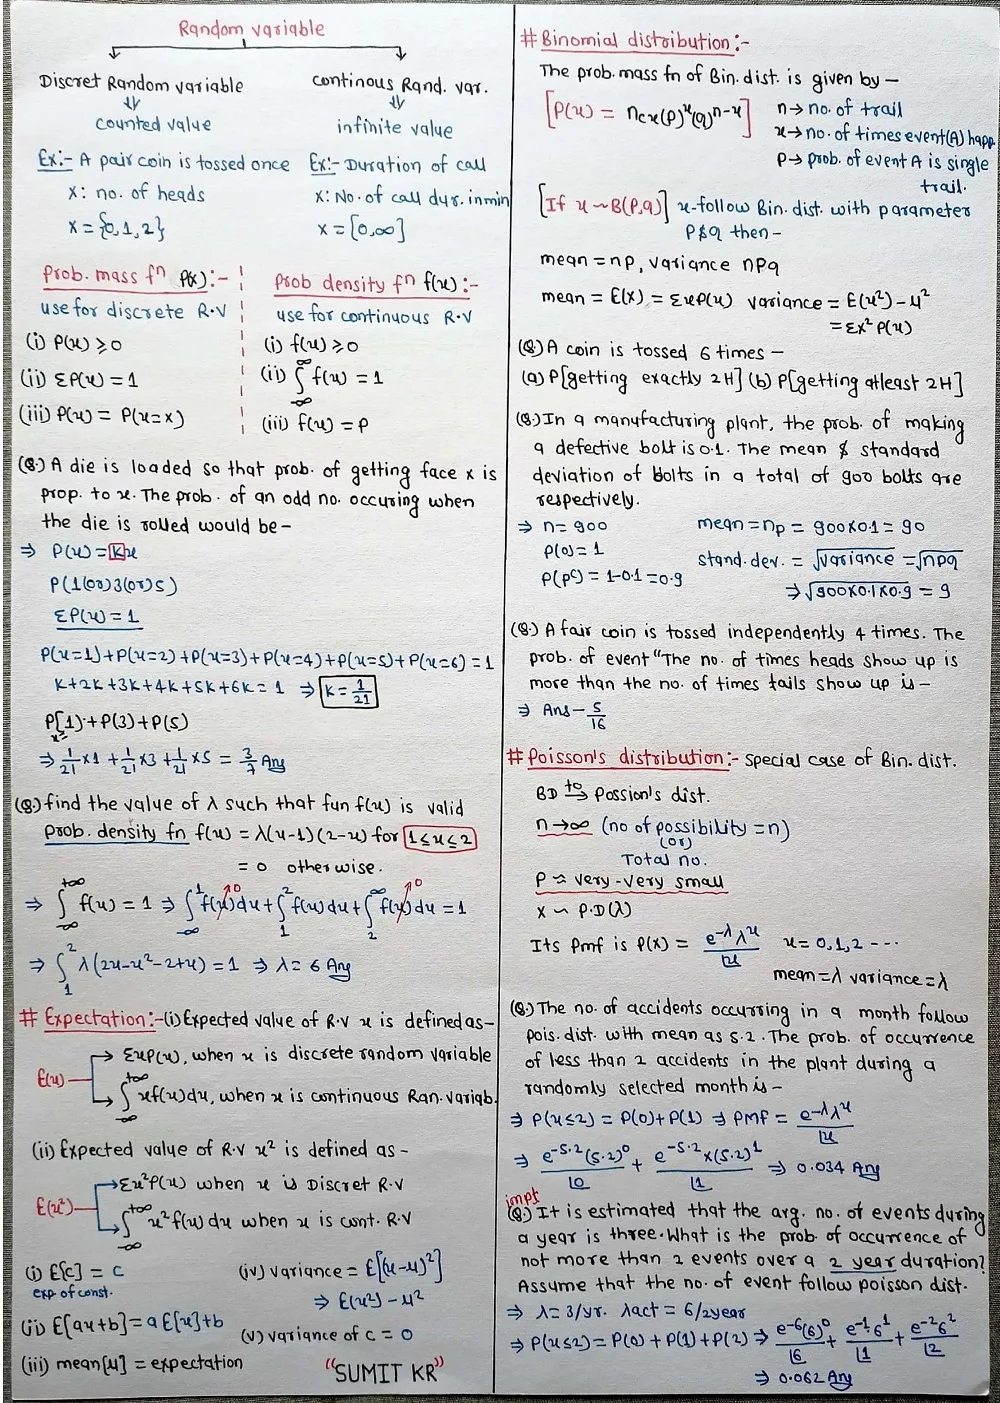 Random variable
Discret Random variable
counted value
Ex:- A pair coin is tossed once
x: no. of heads
x = {0,1,2}
continous Rand. var.
infinite value
Ex:- Duration of call
x: No. of call dur. in min
x = [0,∞]
Prob. mass fⁿ P(x):-
use for discrete R.V
(i) P(x) ≥ 0
(ii) ΣP(x) = 1
(iii) P(x) = P(x=x)
Prob density fⁿ f(x):-
use for continuous R.V
(i) f(x) ≥ 0
(ii) ∫_{-∞}^{∞} f(x) = 1
(iii) f(x) = P
(Q.) A die is loaded so that prob. of getting face x is
prop. to x. The prob. of an odd no. occuring when
the die is rolled would be -
⇒ P(x) = kx
P(1(or)3(or)5)
ΣP(x) = 1
P(x=1)+P(x=2)+P(x=3)+P(x=4)+P(x=5)+P(x=6) = 1
k+2k+3k+4k+5k+6k = 1 ⇒ k = 1/21
P[1)+P(3)+P(5)
x=
⇒ 1/21 x1 + 1/21 x3 + 1/21 x5 = 3/7 Ans
(Q.) find the value of λ such that fun f(x) is valid
prob. density fn f(x) = λ(x-1)(2-x) for 1≤x≤2
= 0 otherwise.
⇒ ∫_{-∞}^{+∞} f(x) = 1 ⇒ ∫_{-∞}^{1} f(x)dx →0 + ∫_{1}^{2} f(x)dx + ∫_{2}^{∞} f(x)dx →0 = 1
⇒ ∫_{1}^{2} λ(2x-x²-2+x) = 1 ⇒ λ = 6 Ans
# Expectation:- (i) Expected value of R.V x is defined as-
Σxp(x), when x is discrete random variable
E(x)
∫_{-∞}^{+∞} xf(x)dx, when x is continuous Ran. variab.
(ii) Expected value of R.V x² is defined as -
Σx²P(x) when x is Discret R.V
E(x²)
∫_{-∞}^{+∞} x²f(x)dx when x is cont. R.V
(i) E[c] = c
exp of const.
(ii) E[ax+b] = a E[x]+b
(iii) mean[μ] = expectation
(iv) variance = E[(x-μ)²]
⇒ E(x²) - μ²
(v) variance of c = 0
"SUMIT KR"
# Binomial distribution:-
The prob. mass fn of Bin. dist. is given by -
[P(x) = ncx(P)^x(q)^{n-x}]
n→ no. of trail
x→ no. of times event(A) happ
P→ prob. of event A is single
trail.
[If x ~ B(P,q)] x-follow Bin. dist. with parameter
P&q then -
mean = np, variance npq
mean = E(x) = Σxp(x) variance = E(x²) - μ²
= Σx² P(x)
(Q.) A coin is tossed 6 times -
(a) P[getting exactly 2H] (b) P[getting atleast 2H]
(Q.) In a manufacturing plant, the prob. of making
a defective bolt is 0.1. The mean & standard
deviation of bolts in a total of 900 bolts are
respectively.
⇒ n = 900
P(0) = 1
P(P^c) = 1-0.1 = 0.9
mean = np = 900x0.1 = 90
stand. dev. = √variance = √npq
⇒ √900x0.1x0.9 = 9
(Q.) A fair coin is tossed independently 4 times. The
prob. of event "The no. of times heads show up is
more than the no. of times tails show up is -
⇒ Ans - 5/16
# Poisson's distribution:- special case of Bin. dist.
BD to→ Possion's dist.
n→∞ (no of possibility = n)
(or)
Total no.
P ≈ very-very small
x ~ P.D(λ)
Its Pmf is P(x) = e^{-λ}λ^x / |x x = 0,1,2 ---
mean = λ variance = λ
(Q.) The no. of accidents occurring in a month follow
pois. dist. with mean as 5.2. The prob. of occurrence
of less than 2 accidents in the plant during a
randomly selected month is -
⇒ P(x≤2) = P(0)+P(1) ⇒ PMF = e^{-λ}λ^x / |x
⇒ e^{-5.2}(5.2)^0 / |0 + e^{-5.2}x(5.2)^1 / |1 ⇒ 0.034 Ans
impt
(Q.) It is estimated that the arg. no. of events during
a year is three. What is the prob. of occurrence of
not more than 2 events over a 2 year duration?
Assume that the no. of event follow poisson dist.
⇒ λ = 3/yr. λact = 6/2year
⇒ P(x≤2) = P(0)+P(1)+P(2) ⇒ e^{-6}(6)^0 / |6 + e^{-1}.6^1 / |1 + e^{-2}6^2 / |2
⇒ 0.062 Ans